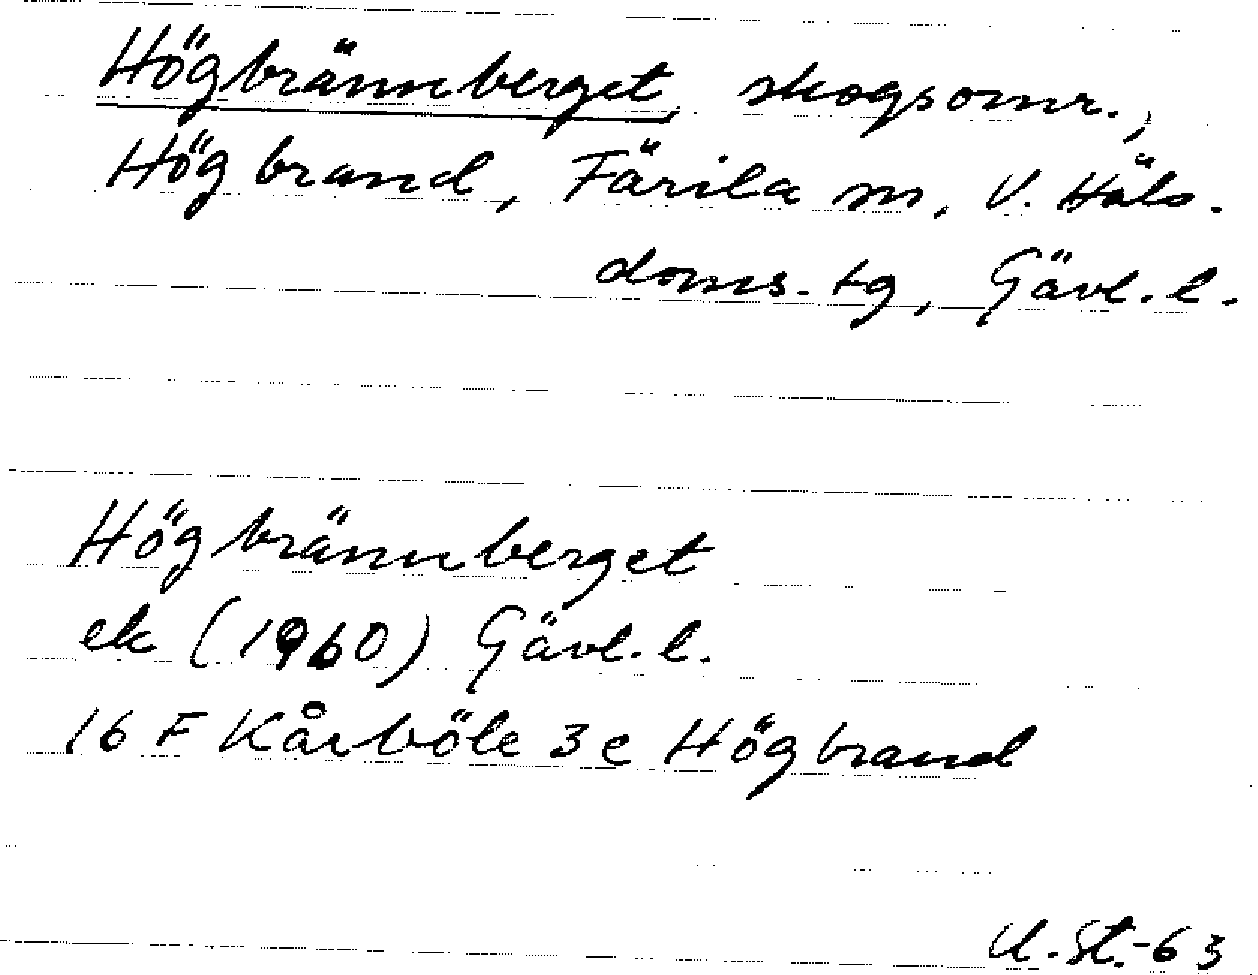 Högbrännberget skogsomr.,
Högbrand, Färila sn, V. Häls.
doms.tg, Gävl.l.
Högbrännberget
ek (1960) Gävl.l.
16 F Kårböle 3e Högbrand
U.St.-63